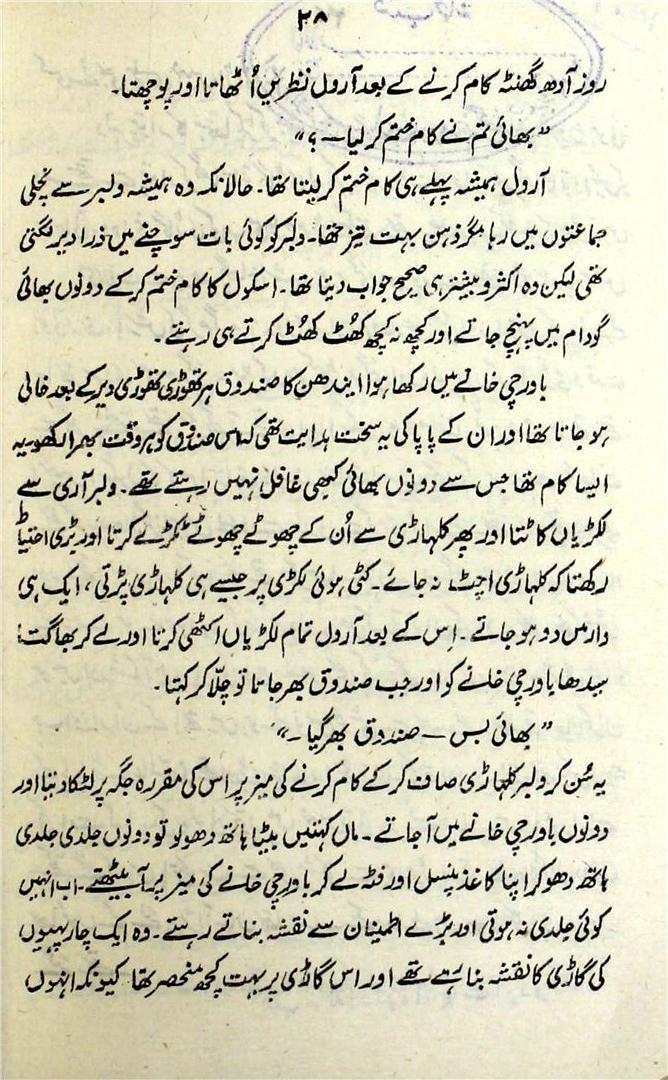 ۲۸
روز آدھ گھنٹہ کام کرنے کے بعد آرول نظریں اُٹھاتا اور پوچھتا۔
”بھائی تم نے کام ختم کر لیا—؟“
آرول ہمیشہ پہلے ہی کام ختم کر لیتا تھا۔ حالانکہ وہ ہمیشہ ولبر سے نچلی
جماعتوں میں رہا مگر ذہن بہت تیز تھا۔ ولبر کو کوئی بات سوچنے میں ذرا دیر لگتی
تھی لیکن وہ اکثر و بیشتر ہی صحیح جواب دیتا تھا۔ اسکول کا کام ختم کر کے دونوں بھائی
گودام میں پہنچ جاتے اور کچھ نہ کچھ کھُٹ کھُٹ کرتے ہی رہتے۔
باورچی خانے میں رکھا ہوا ایندھن کا صندوق ہر تھوڑی تھوڑی دیر کے بعد خالی
ہو جاتا تھا اور ان کے پاپا کی یہ سخت ہدایت تھی کہ اس صندوق کو ہر وقت بھرا رکھو۔ یہ
ایسا کام تھا جس سے دونوں بھائی کبھی غافل نہیں رہتے تھے۔ ولبر آری سے
لکڑیاں کاٹتا اور پھر کلہاڑی سے اُن کے چھوٹے چھوٹے ٹکڑے کرتا اور بڑی احتیاط
رکھتا کہ کلہاڑی اچٹ نہ جائے۔ کٹی ہوئی لکڑی پر جیسے ہی کلہاڑی پڑتی، ایک ہی
وار میں دو ہو جاتے۔ اِس کے بعد آرول تمام لکڑیاں اکٹھی کرتا اور لے کر بھاگتا
سیدھا باورچی خانے کو اور جب صندوق بھر جاتا تو چلّا کر کہتا۔
”بھائی بس — صندوق بھر گیا۔“
یہ سُن کر ولبر کلہاڑی صاف کر کے کام کرنے کی میز پر اس کی مقررہ جگہ پر لٹکا دیتا اور
دونوں باورچی خانے میں آ جاتے۔ ماں کہتیں بیٹا ہاتھ دھولو تو دونوں جلدی جلدی
ہاتھ دھو کر اپنا کاغذ پنسل اور فٹہ لے کر باورچی خانے کی میز پر آ بیٹھتے۔ اب انہیں
کوئی جلدی نہ ہوتی اور بڑے اطمینان سے نقشہ بناتے رہتے۔ وہ ایک چار پہیوں
کی گاڑی کا نقشہ بنا رہے تھے اور اس گاڑی پر بہت کچھ منحصر تھا کیونکہ انہوں